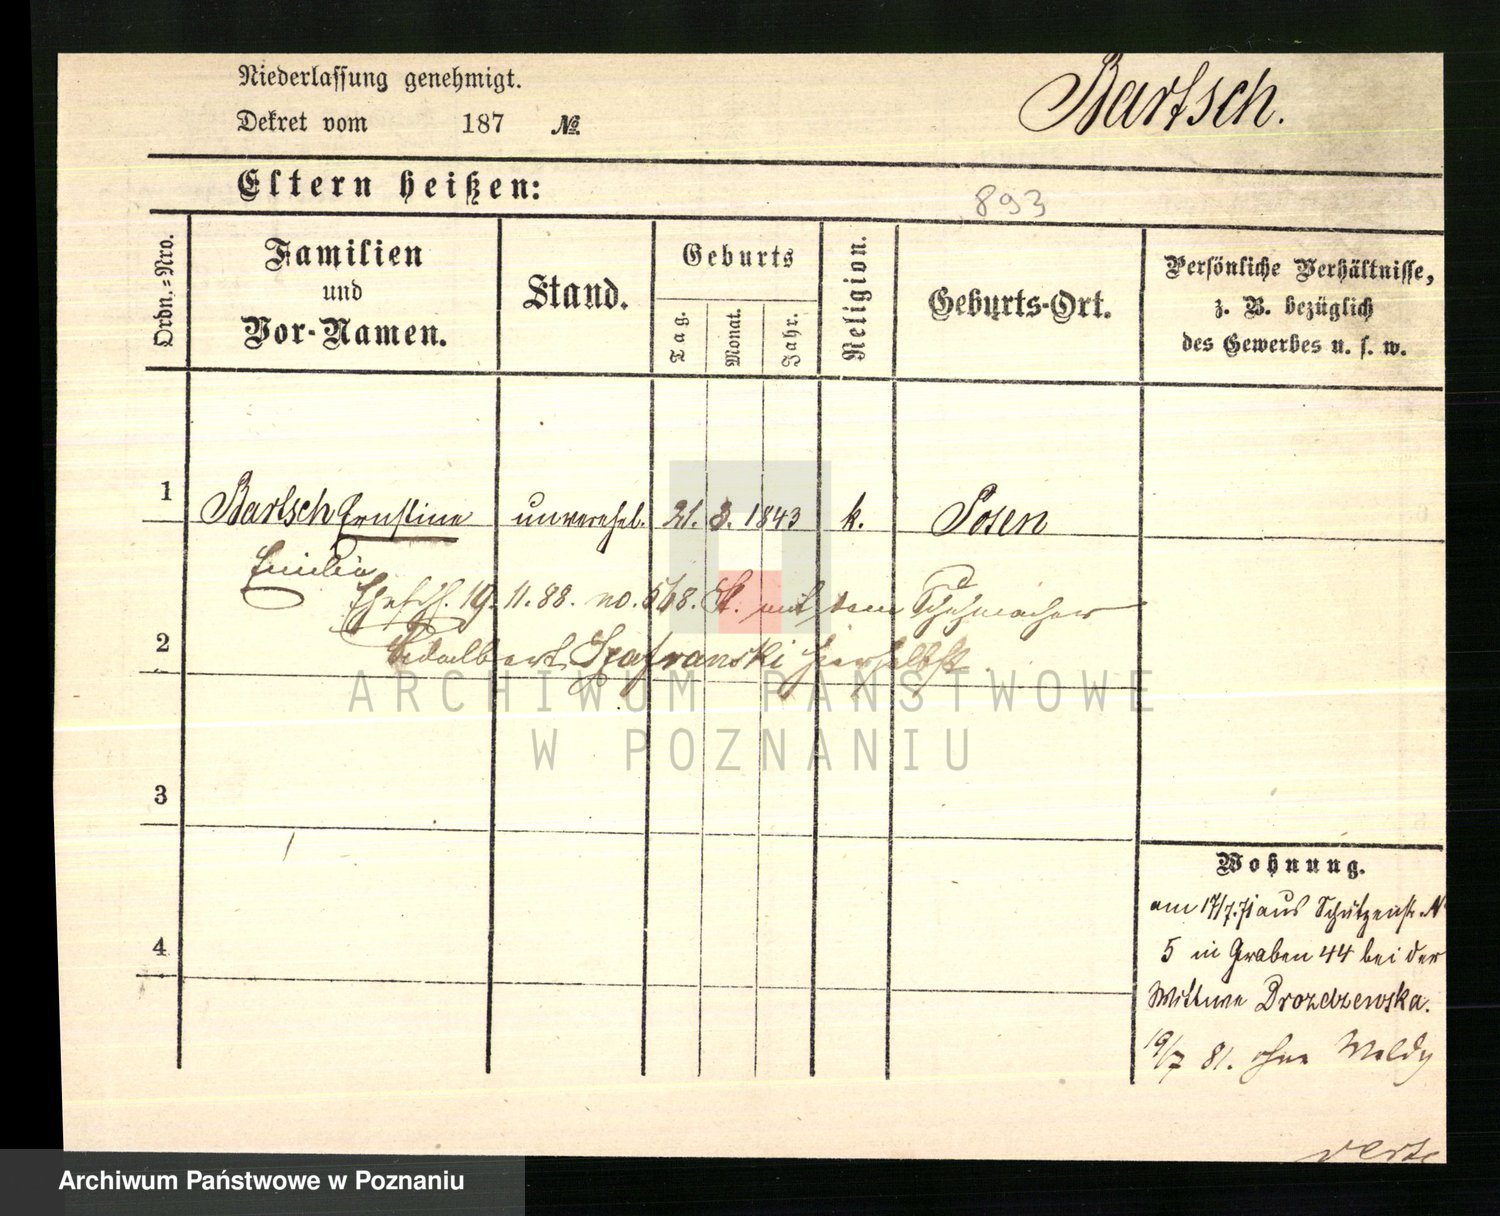 Niederlassung genehmigt.
Bartsch.
Dekret vom 187 No.
Eltern heißen:
893
Ordn.=Nro.
Familien
und
Vor-Namen.
Stand.
Geburts
Tag.
Monat.
Jahr.
Religion.
Geburts-Ort.
Persönliche Verhältnisse,
z. B. bezüglich
des Gewerbes u. s. w.
1 Bartsch Ernstine unverehel. 21. 3. 1843 k. Posen
Emilie
Eheschl. 19. 11. 88. no. 568. St. mit dem Schuhmacher
2
Adalbert Szafranski hierselbst.
ARCHIWUM PAŃSTWOWE
W POZNANIU
3
Wohnung.
am 17/7.71 aus Schützenstr. N
4
5 in Graben 44 bei der
Wittwe Drozdzewska.
19/7 81. ohne Meldg
verte
Archiwum Państwowe w Poznaniu